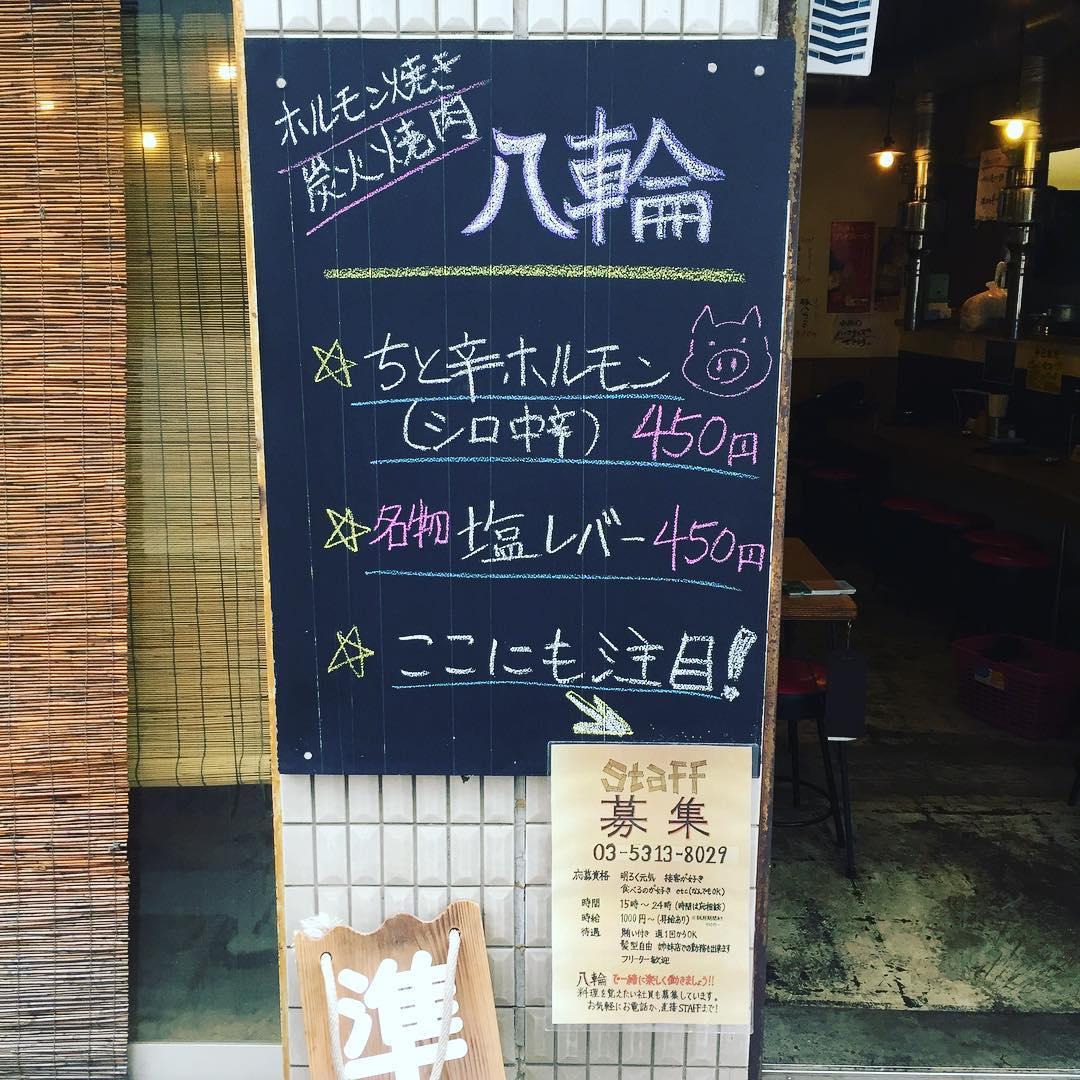 ホルモン焼き
炭火焼肉
八輪
ちと辛ホルモン
(シロ中辛) 450円
名物 塩レバー 450円
ここにも注目!
Staff
募集
03-5313-8029
応募資格 明るく元気 接客が好き
食べるのが好き etc(なんでもOK)
時間 15時~24時(時間は応相談)
時給 1000円~(昇給あり)
待遇 賄い付き 週1回からOK
髪型自由 姉妹店での勤務も出来ます
フリーター歓迎
八輪で一緒に楽しく働きましょう!!
料理を覚えたい社員も募集しています。
お気軽にお電話か、直接STAFFまで!
準